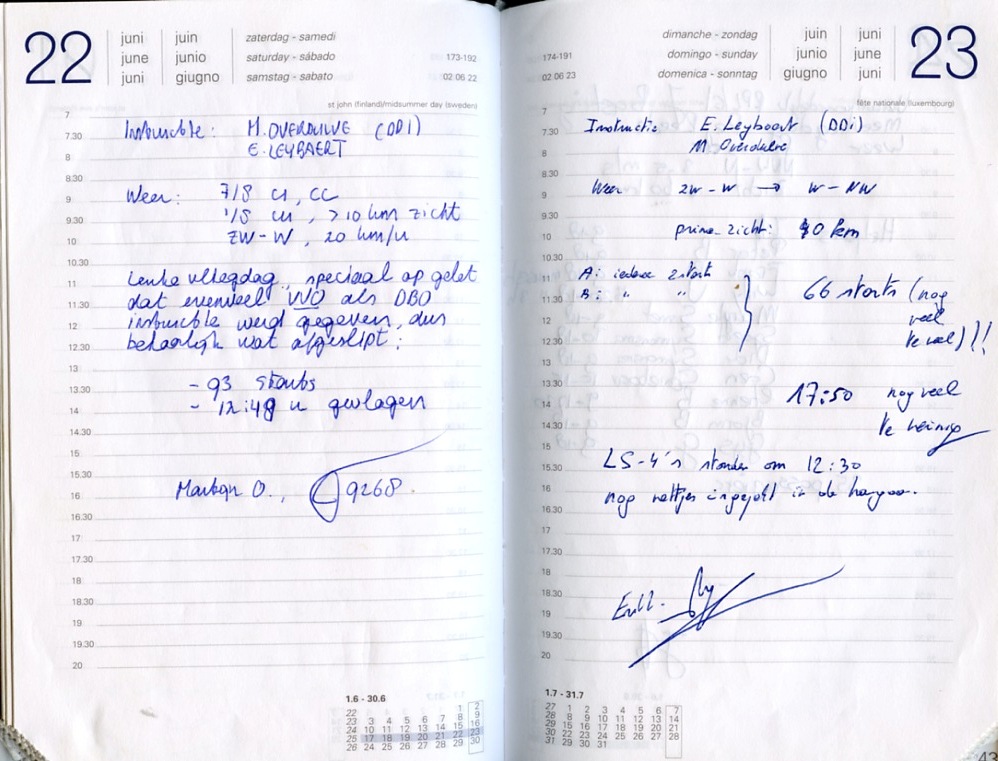 22
juni juin zaterdag - samedi
june junio saturday - sábado 173-192
juni giugno samstag - sabato 02 06 22
st john (finland)/midsummer day (sweden)
7
7.30 Instructie: M. OVERDUIVE (DDI)
8 E. LEYBAERT
8.30
9 Weer: 7/8 CI, CC
9.30 1/8 cu, >10 km zicht
10 ZW-W, 20 km/u
10.30
11 Leuke vliegdag, speciaal op gelet
11.30 dat evenveel VVO als DBO
12 instructie werd gegeven, dus
12.30 behoorlijk wat afgeslipt:
13
13.30 - 93 starts
14 - 12:48 u gevlogen
14.30
15
15.30
16 O., 9268.
16.30
17
17.30
18
18.30
19
19.30
20
1.6 - 30.6
22 1 2
23 3 4 5 6 7 8 9
24 10 11 12 13 14 15 16
25 17 18 19 20 21 22 23
26 24 25 26 27 28 29 30
dimanche - zondag juin juni
174-191 domingo - sunday junio june
02 06 23 domenica - sonntag giugno juni
23
fête nationale (luxembourg)
7
7.30 Instructie E. Leybaert (DDi)
8 M Overduive
8.30
9 Weer ZW-W → W-NW
9.30
10 prima zicht: 40 km
10.30
11 A: iedere 2 starts
11.30 B: " " 66 starts (nog
12 veel
12.30 te veel)!!
13
13.30 17:50 nog veel
14 te weinig
14.30
15 LS-4's stonden om 12:30
15.30
16 nog netjes ingepakt in de hangaar.
16.30
17
17.30
18
18.30
19
19.30
20
1.7 - 31.7
27 1 2 3 4 5 6 7
28 8 9 10 11 12 13 14
29 15 16 17 18 19 20 21
30 22 23 24 25 26 27 28
31 29 30 31
43